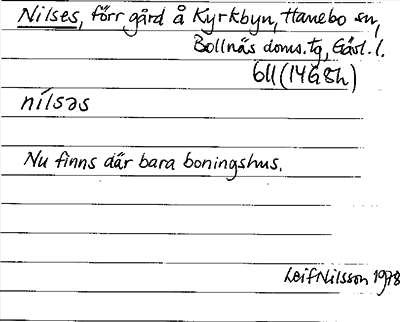 Nilses, förr gård å Kyrkbyn, Hanebo sn,
Bollnäs doms. tg, Gävl. l.
611 (14G 8h)
nilsəs
Nu finns där bara boningshus.
Leif Nilsson 1978